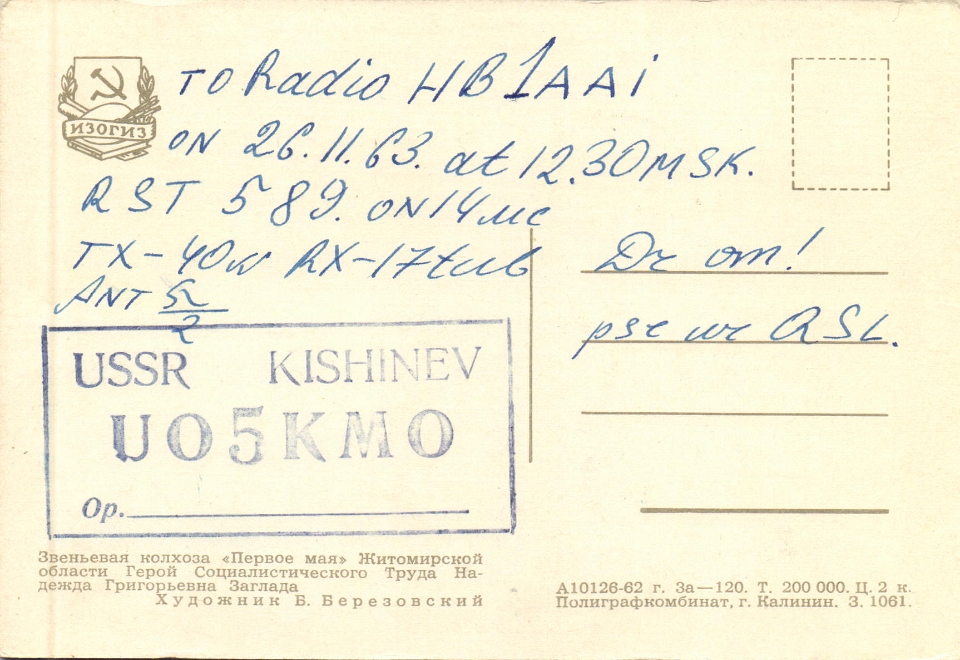 ИЗОГИЗ
TO Radio HB1AAi
ON 26.11.63. at 12.30 MSK.
RST 589. ON 14 mc
TX-40w RX-17tub
ANT
2
USSR KISHINEV
UO5KMO
Op.
Звеньевая колхоза «Первое мая» Житомирской
области Герой Социалистического Труда На-
дежда Григорьевна Заглада
Художник Б. Березовский
Dr om!
pse ur QSL.
А10126-62 г. За—120. Т. 200 000. Ц. 2 к.
Полиграфкомбинат, г. Калинин. З. 1061.